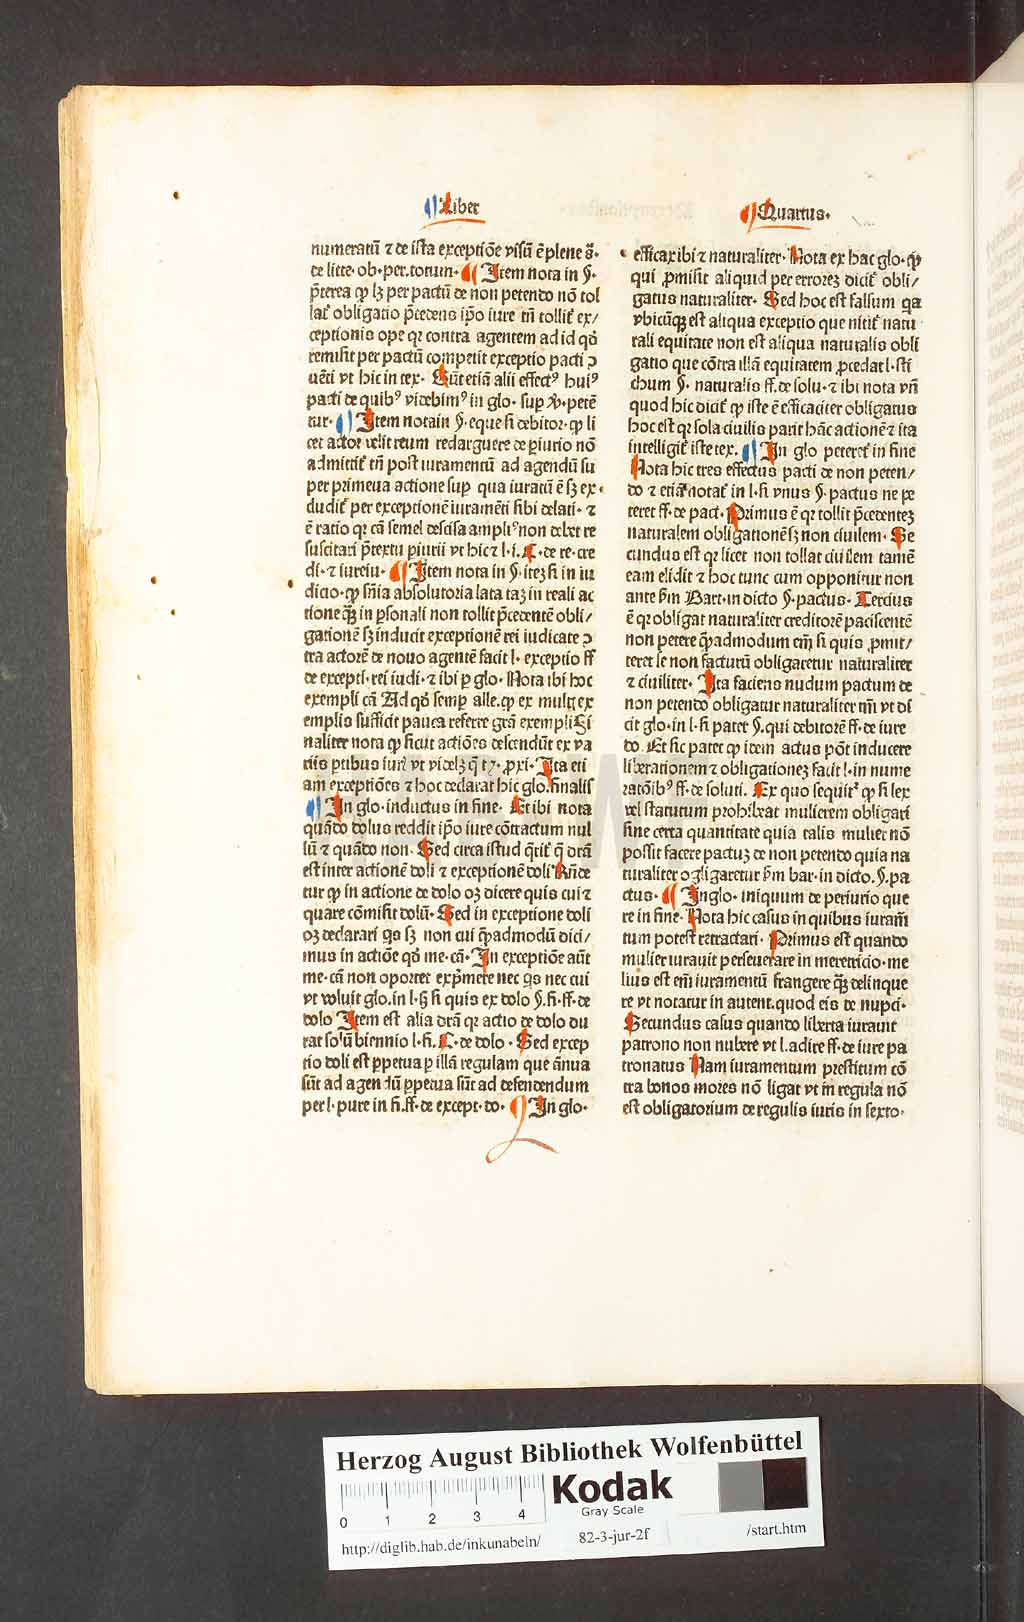 Liber
Quartus.
numeratū ⁊ de ista exceptiōe visū ē plene s̄.
de litte. ob. per. totum. ¶ Item nota in §.
p̄terea ꝙ lꝫ per pactū de non petendo nō tol
lat᷑ obligatio p̄cedens ip̄o iure tn̄ tollit᷑ ex/
ceptionis ope qꝛ contra agentem ad id qd̓
remisit per pactū competit exceptio pacti ɔ
uēti vt hic in tex. Sūt etiā alii effectꝰ huiꝰ
pacti de quibꝰ videbimꝰ in glo. sup v̓. petē
tur. ¶ Item nota in §. eque si debitor. ꝙ li
cet actor velit reum redarguere de ꝑiurio nō
admittit᷑ tn̄ post iuramentū ad agendū su
per primeua actione sup qua iuratū ē sꝫ ex.
dudit᷑ per exceptionē iuramēti sibi delati. ⁊
ē ratio qꝛ cā semel descisa ampliꝰ non debet re
suscitari p̄textu ꝑiurii vt hic ⁊ l. i. C. de re. cre
di. ⁊ iureiu. ¶ Item nota in §. iteꝫ si in iu
dicio. ꝙ sn̄ia absolutoria lata taꝫ in reali ac
tione qꝫ̄ in ꝑsonali non tollit p̄cedentē obli/
gationē sꝫ inducit exceptionē rei iudicate ɔ
tra actorē de nouo agentē facit l. exceptio ff
de excepti. rei iudi. ⁊ ibi ꝑ glo. Nota ibi hoc
exempli cā Ad qd̓ semp alle. ꝙ ex mult ex
emplis sufficit pauca referre grā exempli Si
naliter nota ꝙ sicut actiōes descendūt ex va
riis ꝑtibus iur̓ vt videlꝫ q̄ t⁊. ꝓxi. Ita eti
am exceptiōes ⁊ hoc declarat hic glo. finalis
¶ In glo. inductus in fine. Et ibi nota
quādo dolus reddit ip̄o iure cōtractum nul
lū ⁊ quādo non. Sed circa istud q̄rit᷑ q̄ dr̄a
est inter actionē doli ⁊ exceptionē doli Rn̄de
tur ꝙ in actione de dolo oꝫ dicere quis cui ⁊
quare cōmisit dolū. Sed in exceptione doli
oꝫ declarari qs sꝫ non cui q̄admodū dici/
mus in actiōe qd̓ me. cā. In exceptiōe aūt
me. cā non oportet exp̄mere nec qs nec cui
vt voluit glo. in l. hꝫ si quis ex dolo §. fi. ff. de
dolo Item est alia dr̄a qꝛ actio de dolo du
rat solū biennio l. fi. C. de dolo. Sed excep
tio doli est ꝑpetua ꝑ illā regulam que ānua
sūt ad agendū ꝑpetua sūt ad defendendum
per l. pure in fi. ff. de except. do. ¶ In glo.
efficax ibi ⁊ naturaliter. Nota ex hac glo. ꝙ
qui ꝓmisit aliquid per erroreꝫ dicit᷑ obli/
gatus naturaliter. Sed hoc est falsum qa
vbicūqꝫ est aliqua exceptio que nitit᷑ natu
rali equitate non est aliqua naturalis obli
gatio que cōtra illā equitatem ꝓcedat l. sti
chum §. naturalis ff. de solu. ⁊ ibi nota vn̄
quod hic dicit᷑ ꝙ iste ē efficaciter obligatus
hoc est qꝛ sola ciuilis parit hāc actionē ⁊ ita
intelligit᷑ iste tex. ¶ In glo peteret᷑ in fine
Nota hic tres effectus pacti de non peten/
do ⁊ etiā notat᷑ in l. si vnus §. pactus ne pe
teret ff. de pact. Primus ē qꝛ tollit p̄cedenteꝫ
naturalem obligationē sꝫ non ciuilem. Se
cundus est qꝛ licet non tollat ciuilem tamē
eam elidit ⁊ hoc tunc cum opponitur non
ante ẜm Bart. in dicto §. pactus. Tercius
ē qꝛ obligat naturaliter creditorē paciscentē
non petere q̄admodum em̄ si quis ꝓmit/
teret se non facturū obligaretur naturaliter
⁊ ciuiliter. Ita faciens nudum pactum de
non petendo obligatur naturaliter tm̄ vt di
cit glo. in l. si pater §. qui debitorē ff. de iure
do. Et sic patet ꝙ idem actus pōt inducere
liberationem ⁊ obligationeꝫ facit l. in nume
ratōibꝰ ff. de soluti. Ex quo sequit᷑ ꝙ si lex
vel statutum prohibeat mulierem obligari
sine certa quantitate quia talis mulier nō
possit facere pactuꝫ de non petendo quia na
turaliter ogligaretur ẜm bar. in dicto. §. pa
ctus. ¶ In glo. iniquum de periurio que
re in fine. Nota hic casus in quibus iuram̄
tum potest retractari. Primus est quando
mulier iurauit perseuerare in meretricio. me
lius est em̄ iuramentū frangere qꝫ̄ delinque
re vt notatur in autent. quod eis de nupci.
Secundus casus quando liberta iurauit
patrono non nubere vt l. adire ff. de iure pa
tronatus Nam iuramentum prestitum cō
tra bonos mores nō ligat vt in regula nō
est obligatorium de regulis iuris in sexto.
Herzog August Bibliothek Wolfenbüttel
0 1 2 3 4
Kodak
Gray Scale
http://diglib.hab.de/inkunabeln/
82-3-jur-2f
/start.htm